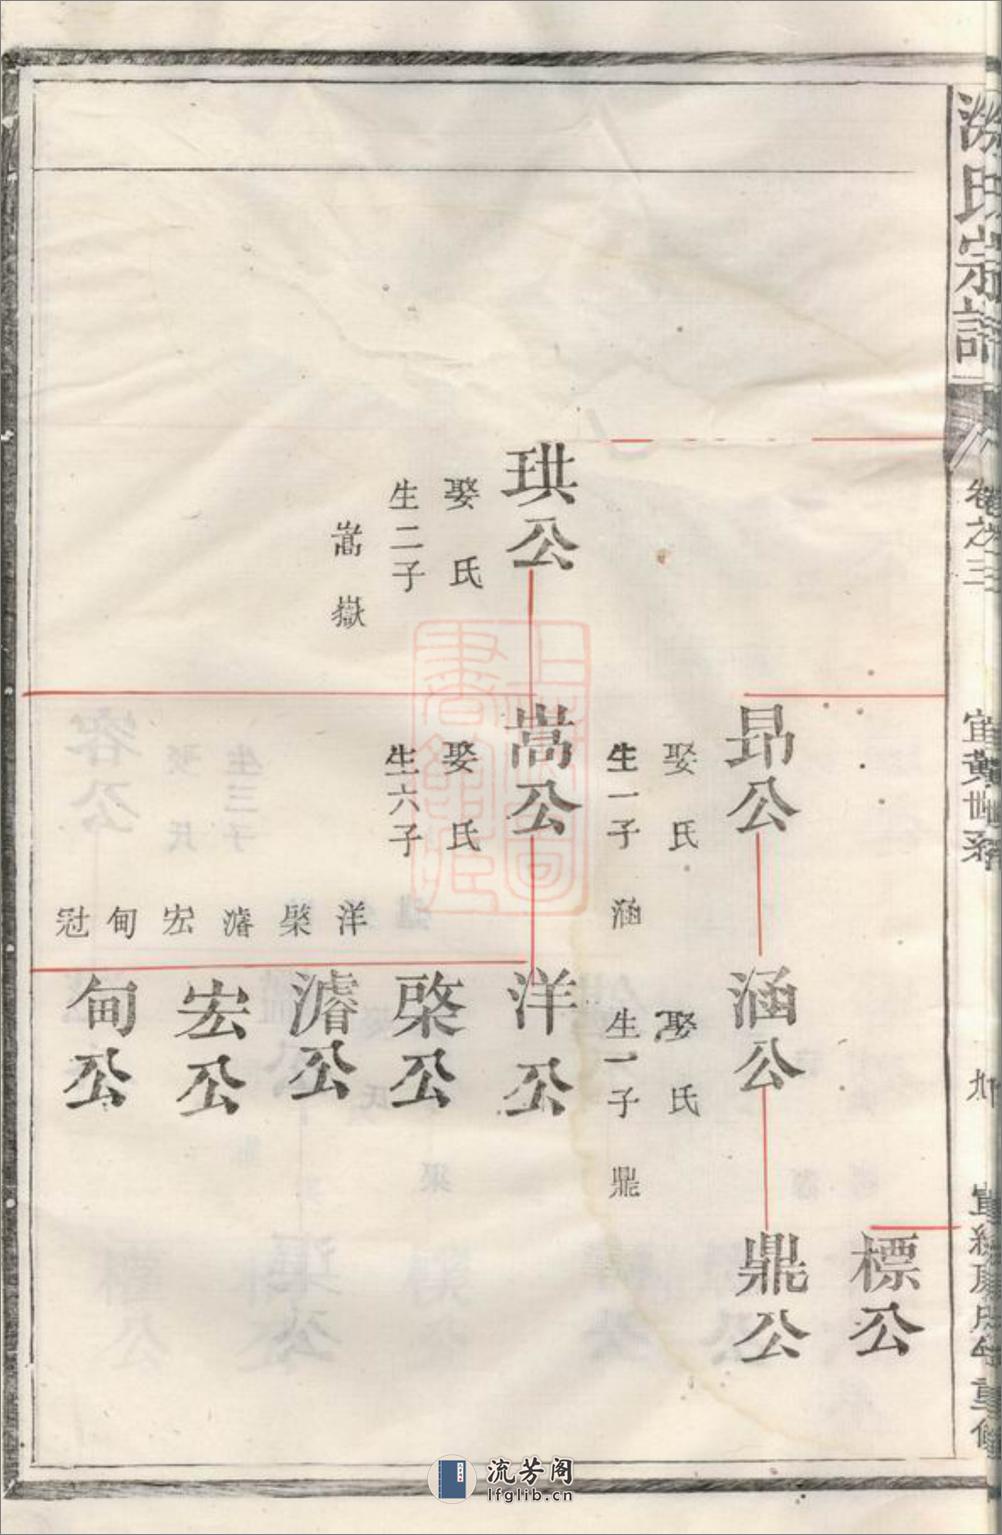 氏宗譜
卷之三
宜黃世系
標公
昂公
娶氏
生一子
涵
涵公
娶氏
生一子
鼎
鼎公
珙公
娶氏
生二子
嵩嶽
嵩公
娶氏
生六子
洋棨濬宏甸冠
洋公
棨公
濬公
宏公
甸公
上海圖書館藏
流芳阁
lfglib.cn